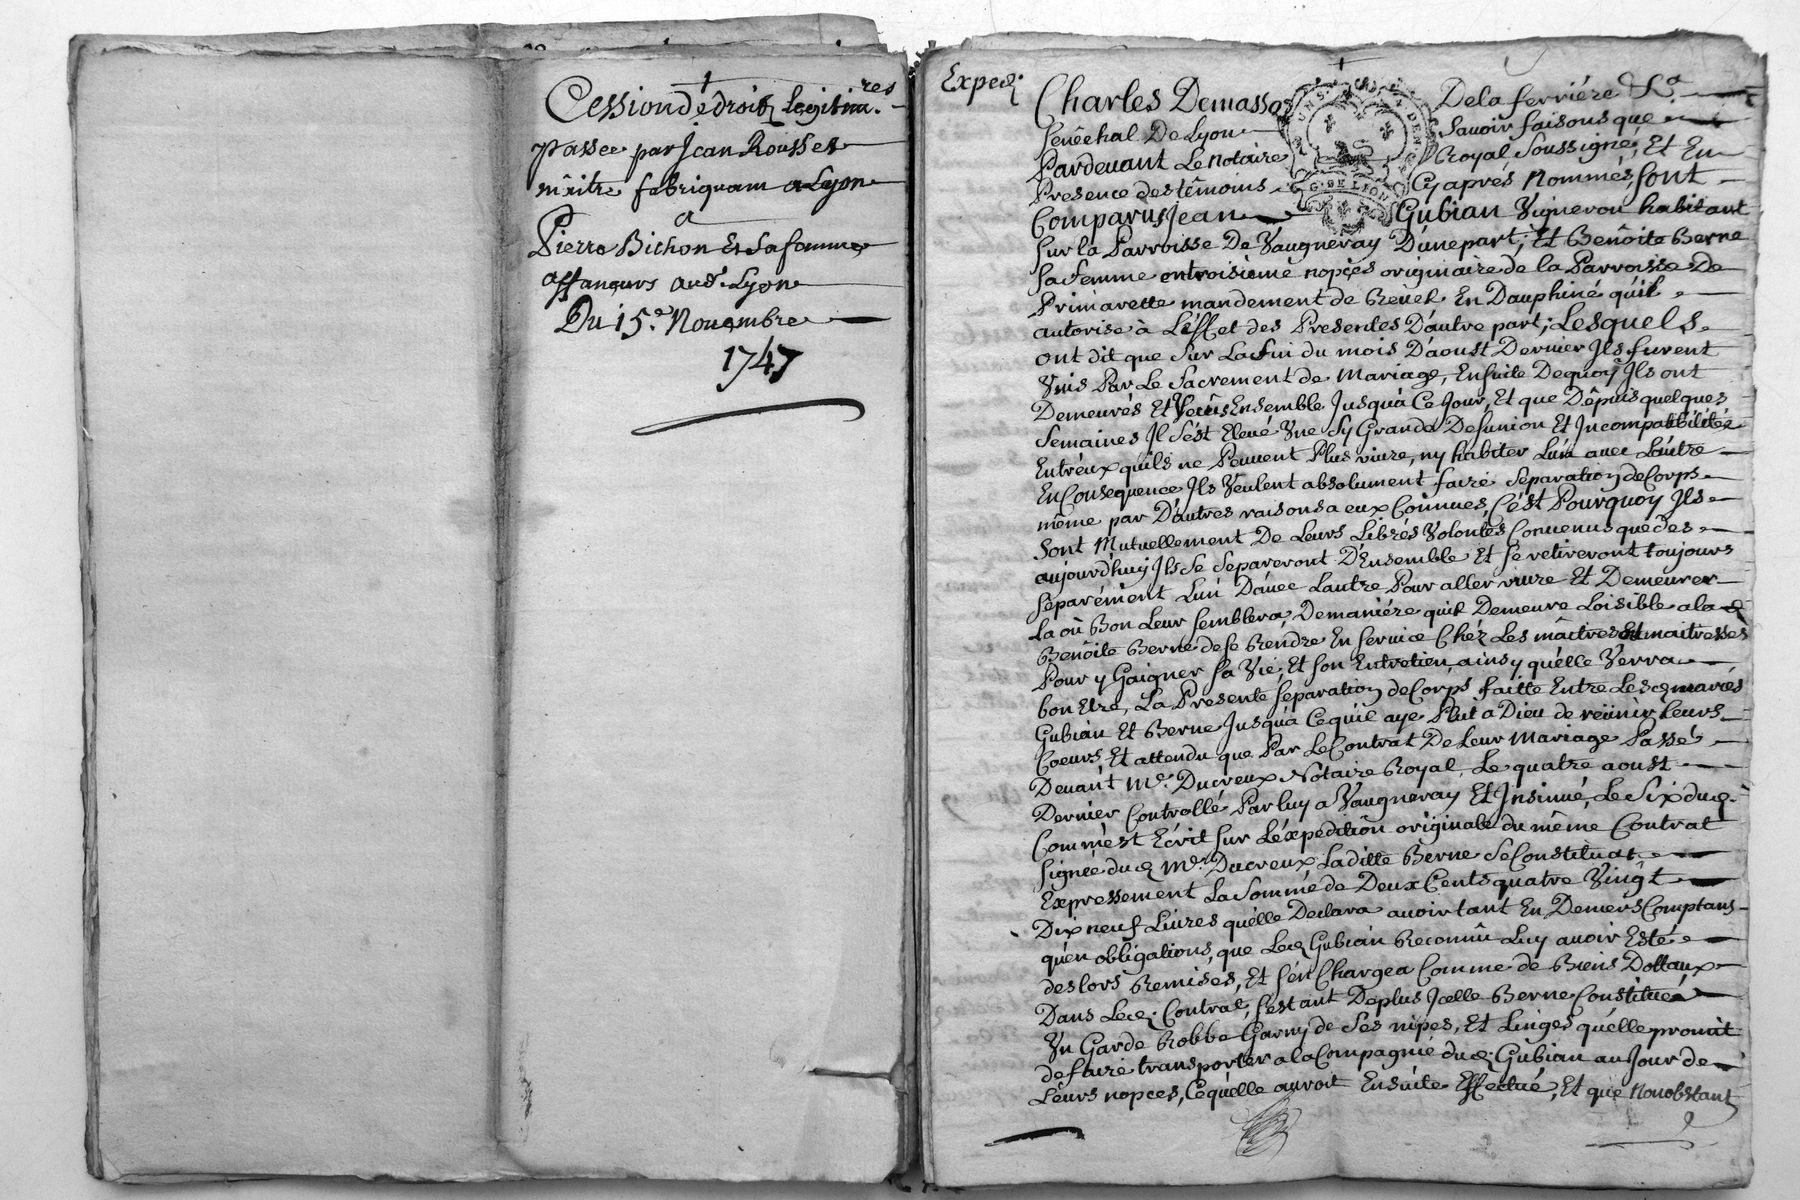 Cession de droitz Legitimres
passee par Jean Rousset
mâitre fabriquant a Lyon
a
Pierre Bichon Et Sa femme
affaneurs aud. Lyon
Du 15e. Novembre
1747
Exped.
Charles Demasso De la ferriére &a
Senêchal De Lyon Savoir faisons que
Pardevant Le Notaire Royal Soussigné, Et En
Presence des têmoins Cy aprés Nommés, Sont
Comparus Jean Gubian Vigneron habitant
Sur la Parroisse De Vaugneray D'une part; Et Benôite Berne
Sa femme en troisiême nopces originaire de la Parroisse De
Primarette mandement de Revel En Dauphiné qu'il
autorise à L'éffet des Presentes D'autre part; Lesquels
ont dit que Sur La fin du mois D'aoust Dernier Ils furent
Vnis Par Le Sacrement de Mariage, Ensuite Dequoy Ils ont
Demeurés Et Vecûs Ensemble Jusqu'à Ce Jour, Et que Dêpuis quelques
Semaines Il S'ést Elevé Vne Sy Grande Desunion Et Incompatibilité
Entréux qu'ils ne Peuvent Plus vivre, ny habiter L'ún avec L'áutre
En Consequence Ils Veulent absolument faire Separation de Corps
même par D'autres raisons a eux Connues, C'ést Pourquoy Ils
Sont Mutuellement De Leurs Libres Volontés Convenus que dés
aujourd'huy Ils Se Separeront D'Ensemble Et Se retireront toujours
Separément L'un D'avec Lautre Pour aller vivre Et Demeurer
La où Bon Leur Semblera, De maniére qu'il Demeure Loisible a lad.
Benôite Berne de Se Rendre En Service Chéz Les mâitres Et maitresses
Pour y Gaigner Sa Vie, Et Son Entretien, ainsy qu'élle Verra
bon Etre, La Presente Separation de Corps faitte Entre Lesd. mariés
Gubian Et Berne Jusqu'a Ce qu'il aye Plut a Dieu de reünir Leurs
Coeurs Et attendu que Par Le Contrat De Leur Mariage Passé
Devant Me. Ducreux Notaire Royal, Le quatre aoust
Dernier Controllé Par luy a Vaugneray Et Insinué, Le Six dud.
Comm'est Ecrit Sur L'éxpedition originale du même Contrat
Signée dud. Me. Ducreux, Laditte Berne Se Constitua
Expressement La Somme de Deux Cents quatre Vingt
Dix neuf Livres qu'élle Declara avoir tant En Deniers Comptans
qu'en obligations, que Led. Gubian Reconnû Luy avoir Esté
des lors Remises, Et S'én Chargea Comme de Biens Dottaux
Dans Led. Contrat, S'estant De plus Icelle Berne Constitué
Vn Garde Robbe Garny de Ses nipes, Et Linges qu'élle promit
de faire transporter a la Compagnie dud. Gubian au Jour de
Leurs nopces, Ce qu'élle auroit Ensuite Effectué, Et que Nonobstant